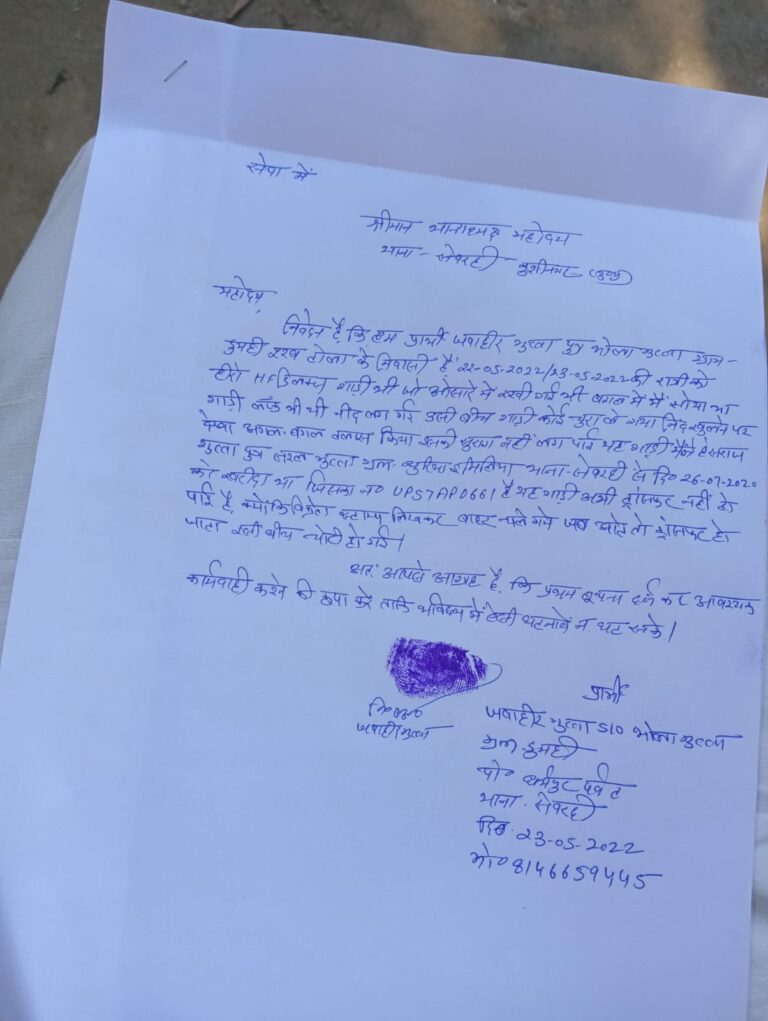 सेवा में
श्रीमान थानाध्यक्ष महोदय
थाना - सेवरही - कुशीनगर
महोदय,
निवेदन है, कि हम प्रार्थी जवाहीर गुप्ता पुत्र भोला गुप्ता ग्राम -
डुमही टोला के निवासी है 22-05-2022/23-05-2022 की रात्री को
हीरो HF डिलक्स गाड़ी थी जो ओसारे में रखी गई थी बगल में मैं सोया था
गाड़ी लॉक भी थी नीद लग गई उसी बीच गाड़ी कोई चुरा ले गया निद खुलने पर
देखा अगल-बगल तलाश किया इसकी सुराग नहीं लग पाई यह गाड़ी मैंने हंसराज
गुप्ता पुत्र गुप्ता ग्राम थाना-सेवरही से दि० 26-07-2020
को खरीदा था जिसका न० UP57AP0661 है यह गाड़ी अभी ट्रांसफर नहीं हो
पाई है, क्योंकि विक्रेता स्टाम्प लिखकर बाहर चले गये जब आते तो ट्रांसफर हो
जाता इसी बीच चोरी हो गई।
अतः आपसे आग्रह है, कि प्रथम सूचना दर्ज कर आवश्यक
कार्यवाही करने की कृपा करें ताकि भविष्य में ऐसी घटनायें न घट सके।
प्रार्थी
नि०अ०
जवाहीर गुप्ता
जवाहीर गुप्ता S/O भोला गुप्ता
ग्राम डुमही
पो०
थाना - सेवरही
दि० 23-05-2022
मो० 8146659445